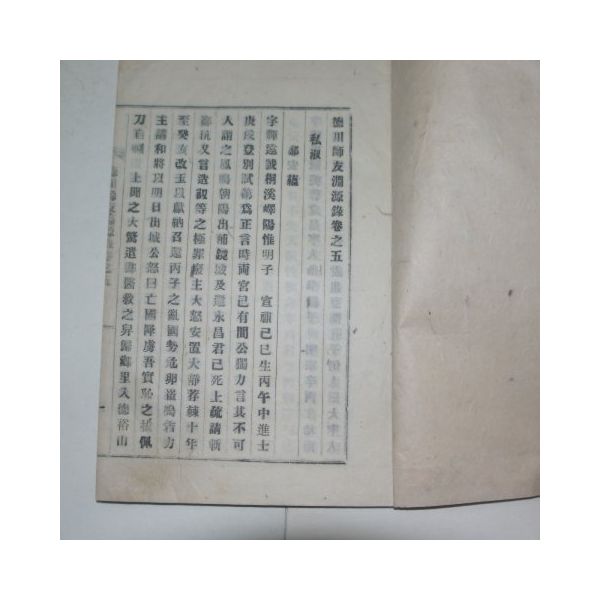 德川師友淵源錄卷之五
私淑
鄭安蘊
字輝遠號桐溪嶧陽惟明子 宣廟己巳生丙午中進士
庚戌登別試第爲正言時兩宮已有間公獨力言其不可
人謂之鳳鳴朝陽出補鏡城及還永昌君已死上疏請斬
鄭沆又言造訒等之極罪廢主大怒安置大靜荐棘十年
至癸亥改玉以獻納召還丙子之亂國勢危卵崔鳴吉力
主講和將以明日出城公怒曰亡國降虜吾實恥之拔佩
刀自 上聞之大驚遣御醫救之舁歸鄕里入德裕山